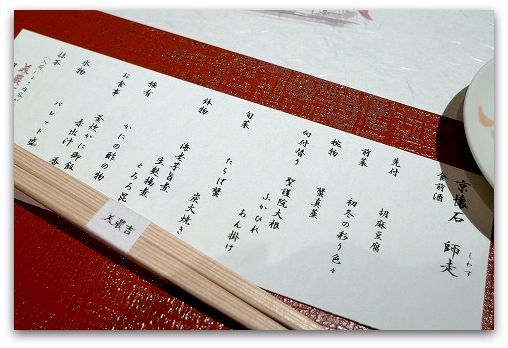 京懐石 師走
しわす
食前酒
先付 胡麻豆腐
前菜 初冬の彩り色々
椀物 蟹真薯
向付替り 聖護院大根
ふかひれ あん掛け
旬菜 たらば蟹 炭火焼き
鉢物 海老芋旨煮
生麩揚煮
とろろ昆
強肴 かにの酢の物
お食事 釜炊かに御飯
赤出し 香
水物 パレット盛
抹茶
美濃吉